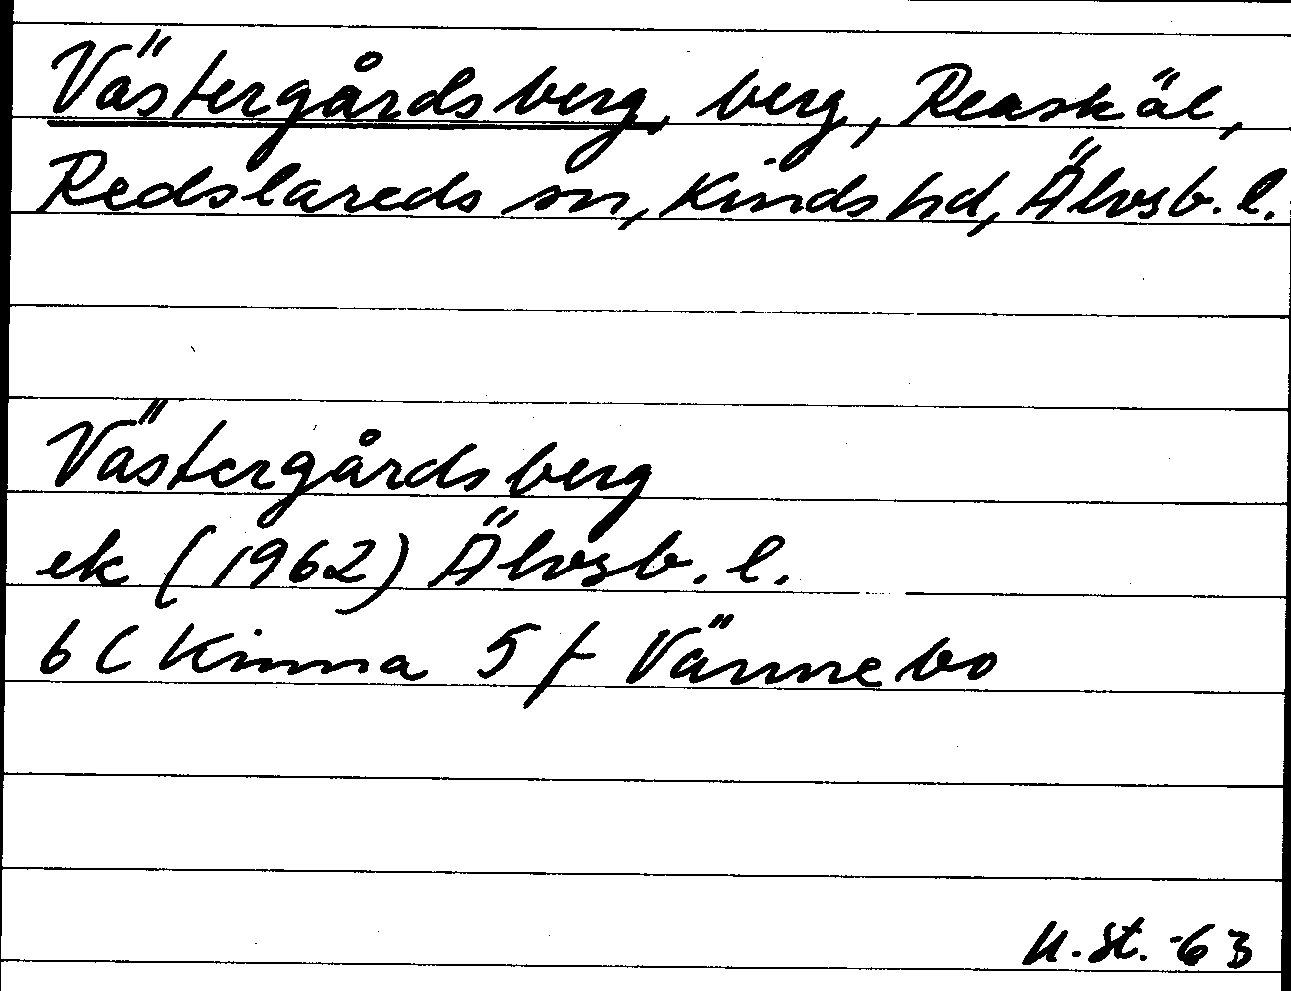 Västergårdsberg, berg, Reaskäl,
Redslareds sn, Kinds hd, Älvsb. l.
Västergårdsberg
ek (1962) Älvsb. l.
6 C Kinna 5 f Vännebo
U. St. -63